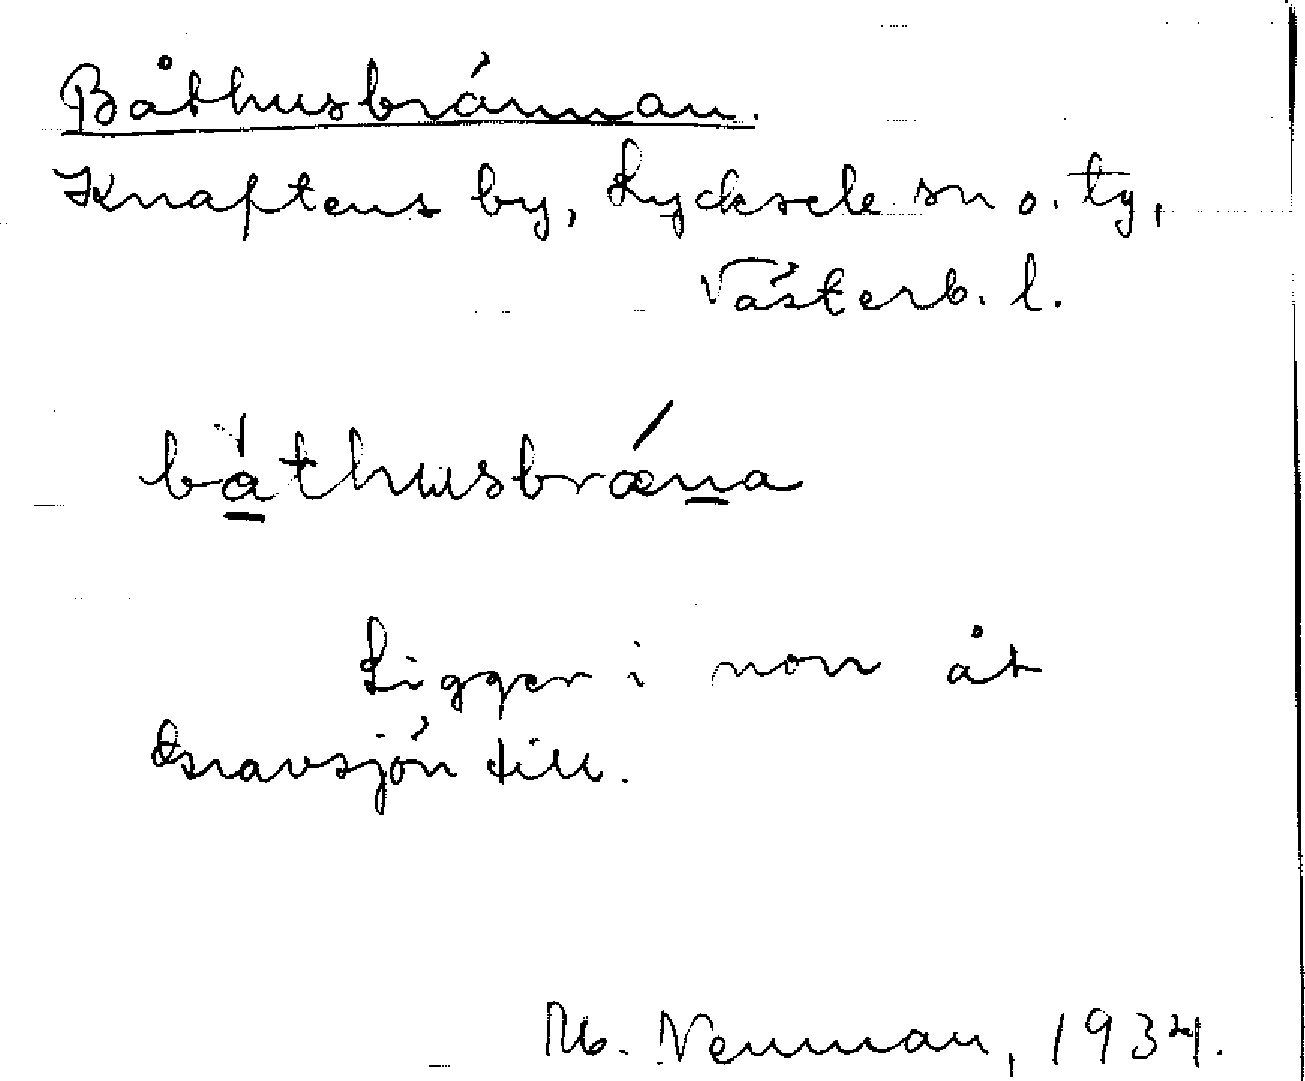 Båthusbrännan.
Knaftens by, Lycksele sn o. tg,
Västerb. l.
båthusbræna
Ligger i norr åt
Gravsjön till.
Neuman, 1934.